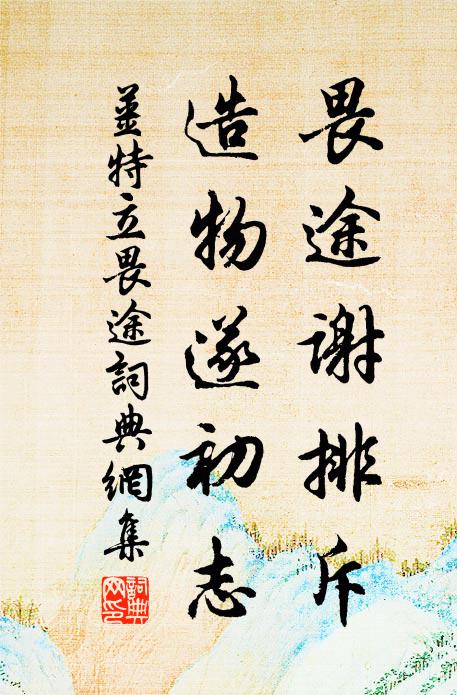 畏途谢排斥
造物遂初志
姜特立畏途詞典網集
詞典网印